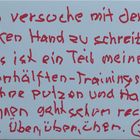 versuche mit der
ken Hand zu schreib
s ist ein Teil meine
nhälften-Trainings
ne putzen und Ha
nen gehts schon rec
Üben üben über